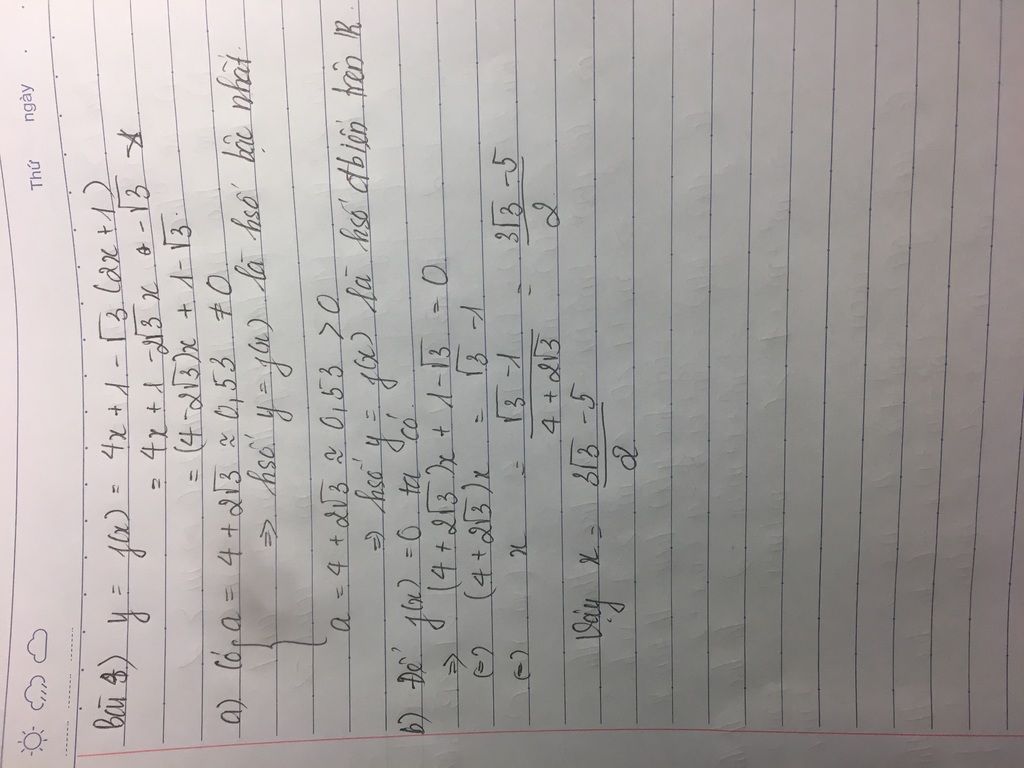 Thứ ngày
bài 3) y = f(x) = 4x + 1 - √3 (2x + 1)
= 4x + 1 - 2√3 x - √3
= (4 - 2√3)x + 1 - √3.
a) Có, a = 4 + 2√3 ≈ 0,53 ≠ 0
=> hsố y = f(x) là hsố bậc nhất.
a = 4 + 2√3 ≈ 0,53 > 0
=> hsố y = f(x) là hsố đbiến trên R.
b) Để f(x) = 0 ta có
=> (4 + 2√3)x + 1 - √3 = 0
(=) (4 + 2√3)x = √3 - 1
(=) x = (√3 - 1)/(4 + 2√3) = (3√3 - 5)/2
Vậy x = (3√3 - 5)/2